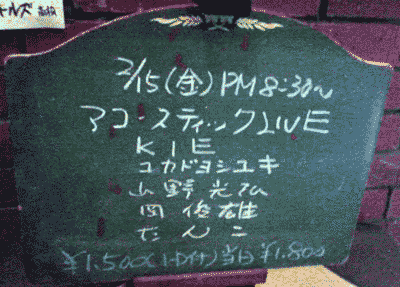 2/15(金)PM8:30〜
アコースティックLIVE
KIE
コカドヨシユキ
山野光弘
岡俊雄
だんご
¥1.500(1D付)当日¥1.800